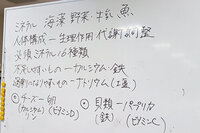 ミネラル 海藻 野菜 牛乳 魚
人体構成 — 生理作用 代謝
必須ミネラル16種類
不足しやすいもの — カルシウム・鉄
過剰になりやすいもの — ナトリウム(工業)
チーズ — 卵
(カルシウム) (ビタミンD)
リン
貝類 — パプリカ
(鉄) (ビタミンC)